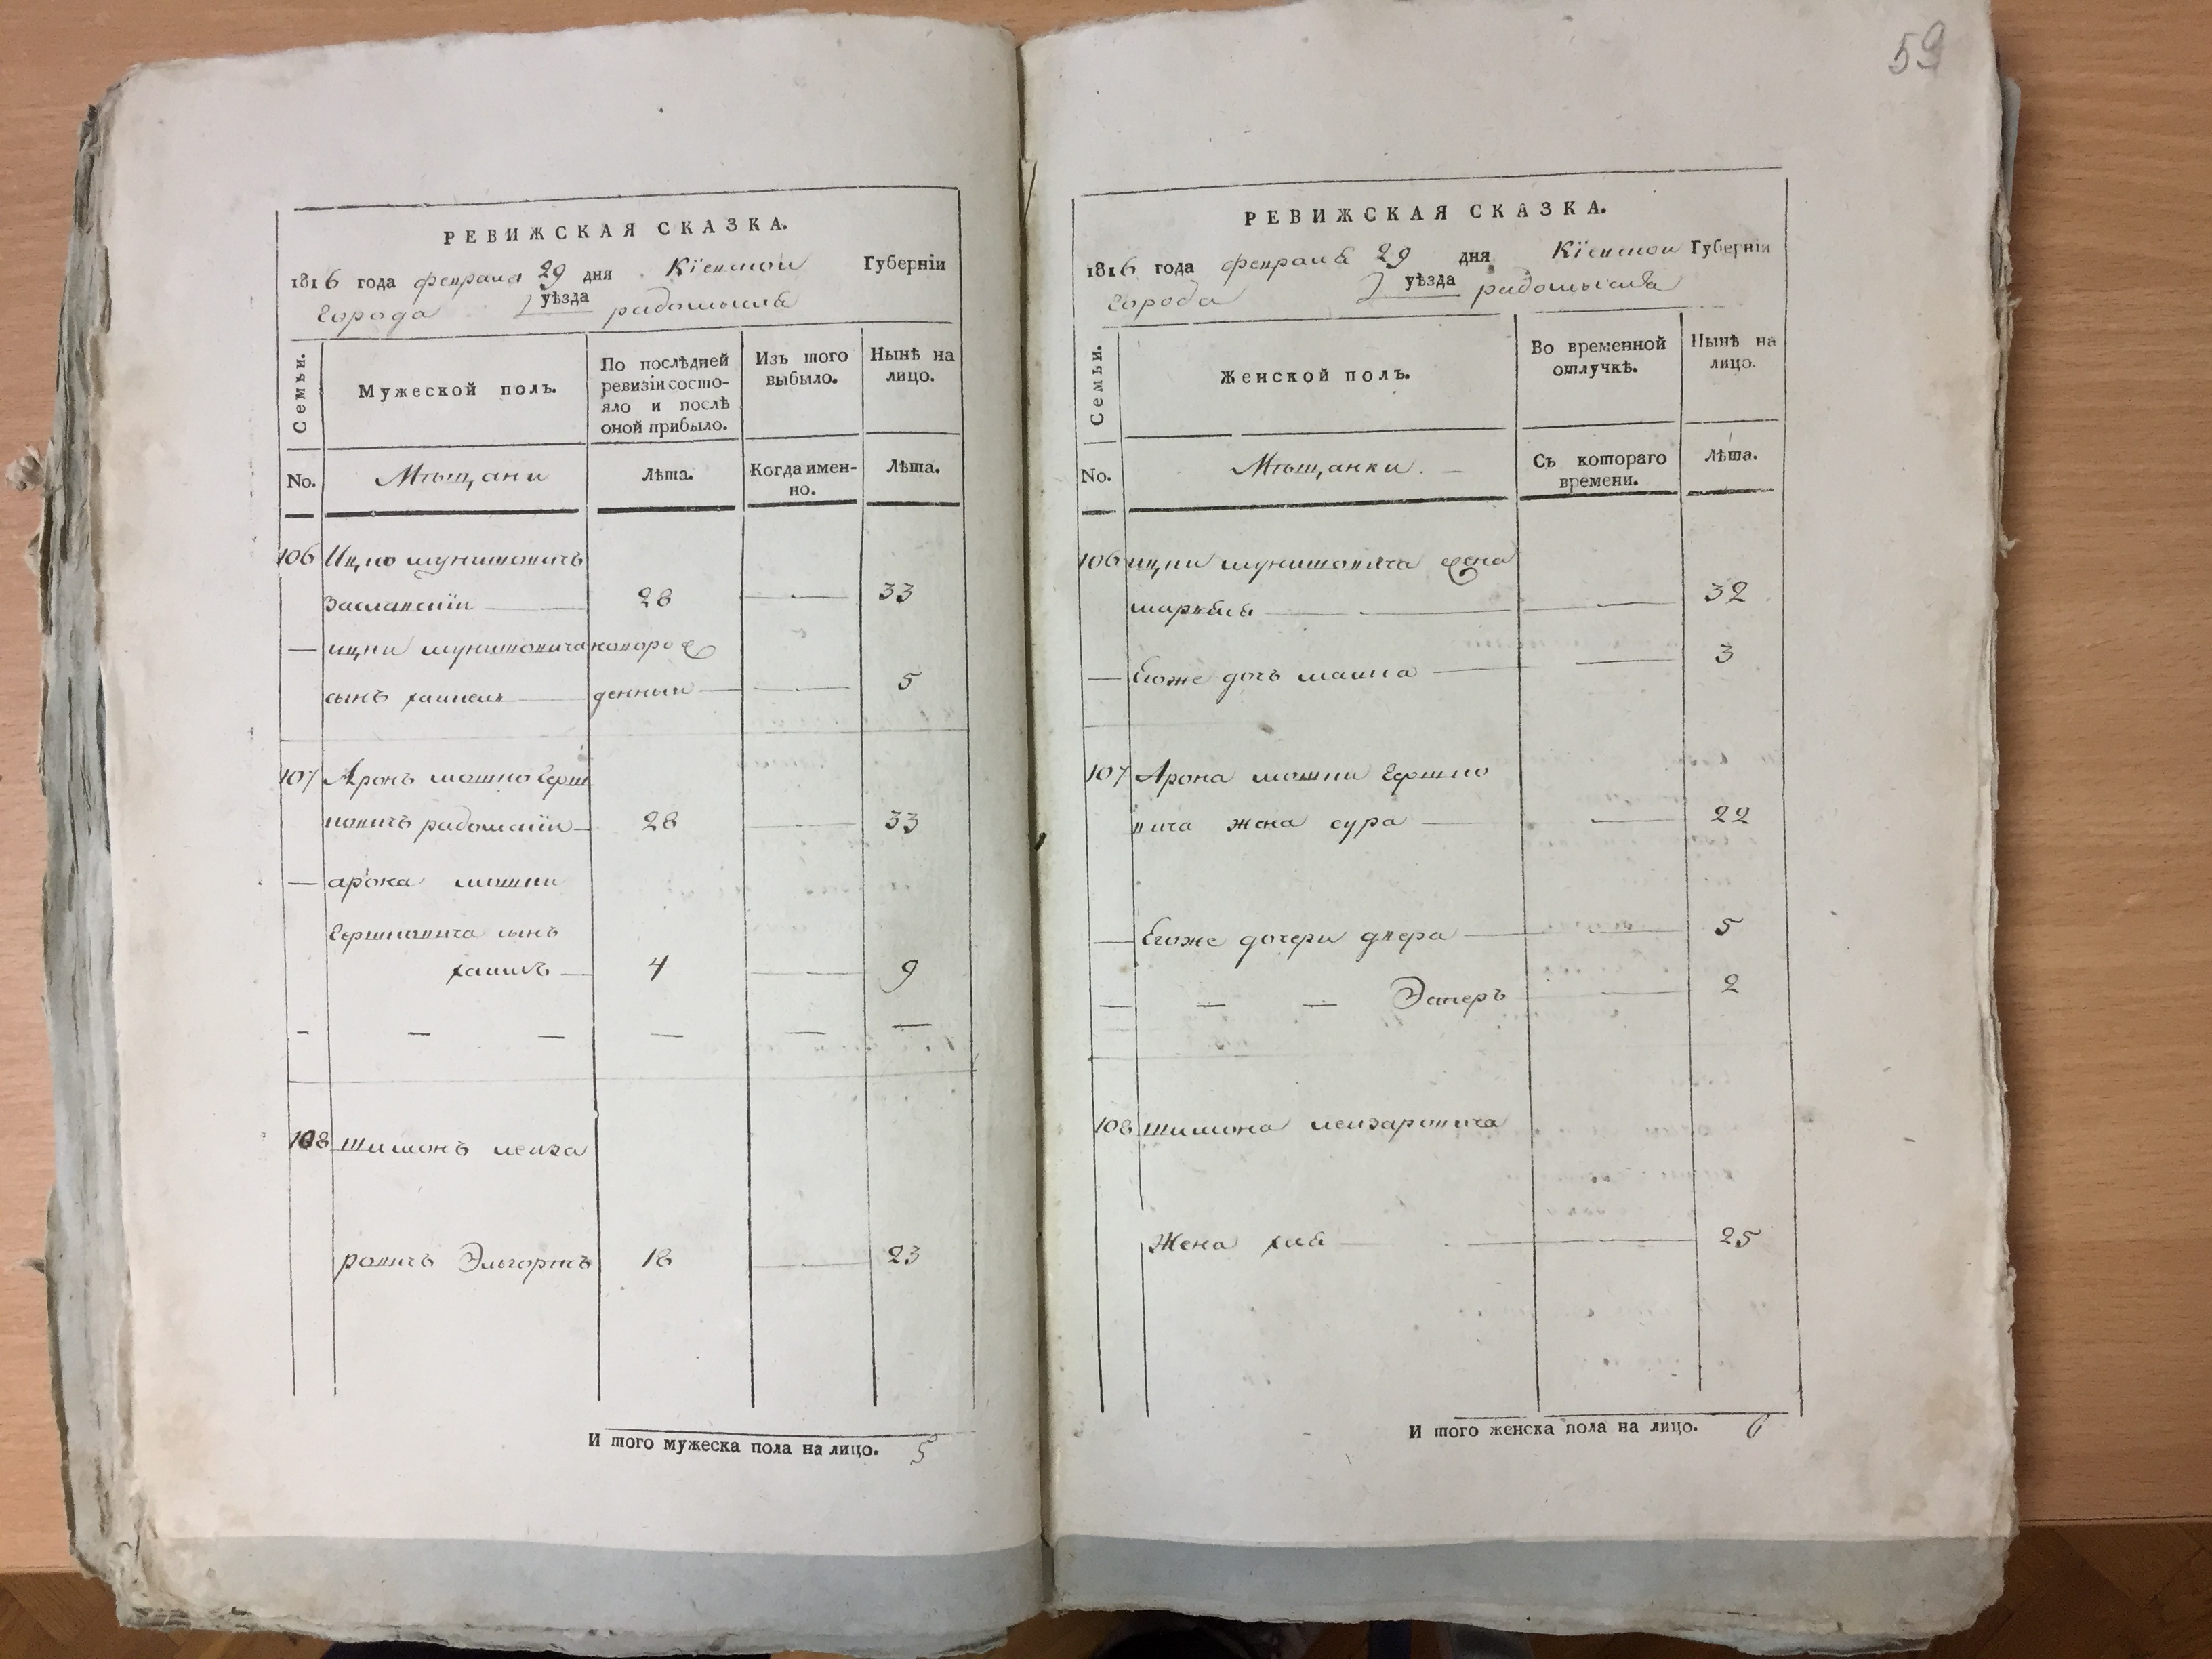 59
РЕВИЖСКАЯ СКАЗКА.
1816 года февраля 29 дня Кіевской Губерніи
Города уѣзда радомысля
Семьи.
Мужеской полъ.
По послѣдней
ревизіи состо-
яло и послѣ
оной прибыло.
Изъ того
выбыло.
Нынѣ на
лицо.
No.
Мѣщани
Лѣта.
Когда имен-
но.
Лѣта.
106 Ицко мунишовичъ
Заславскій 28 33
ицки мунишовича новорож
сынъ хаикель денный 5
107 Аронъ мошко Герш
ковичъ радомскій 28 33
арона мошки
Гершковича сынъ
хаимъ 4 9
108 шимонъ леиза
ровичъ Эльгортъ 18 23
И того мужеска пола на лицо. 5
РЕВИЖСКАЯ СКАЗКА.
1816 года февраля 29 дня Кіевской Губерніи
Города уѣзда радомысля
Семьи.
Женской полъ.
Во временной
отлучкѣ.
Нынѣ на
лицо.
No.
Мѣщанки.
Съ котораго
времени.
Лѣта.
106 ицки мунишовича жена
32
Егоже дочь 3
107 Арона мошки Гершко
вича жена сура 22
Егоже дочери двера 5
Эстеръ 2
108 шимона леизаровича
Жена хая 25
И того женска пола на лицо. 6